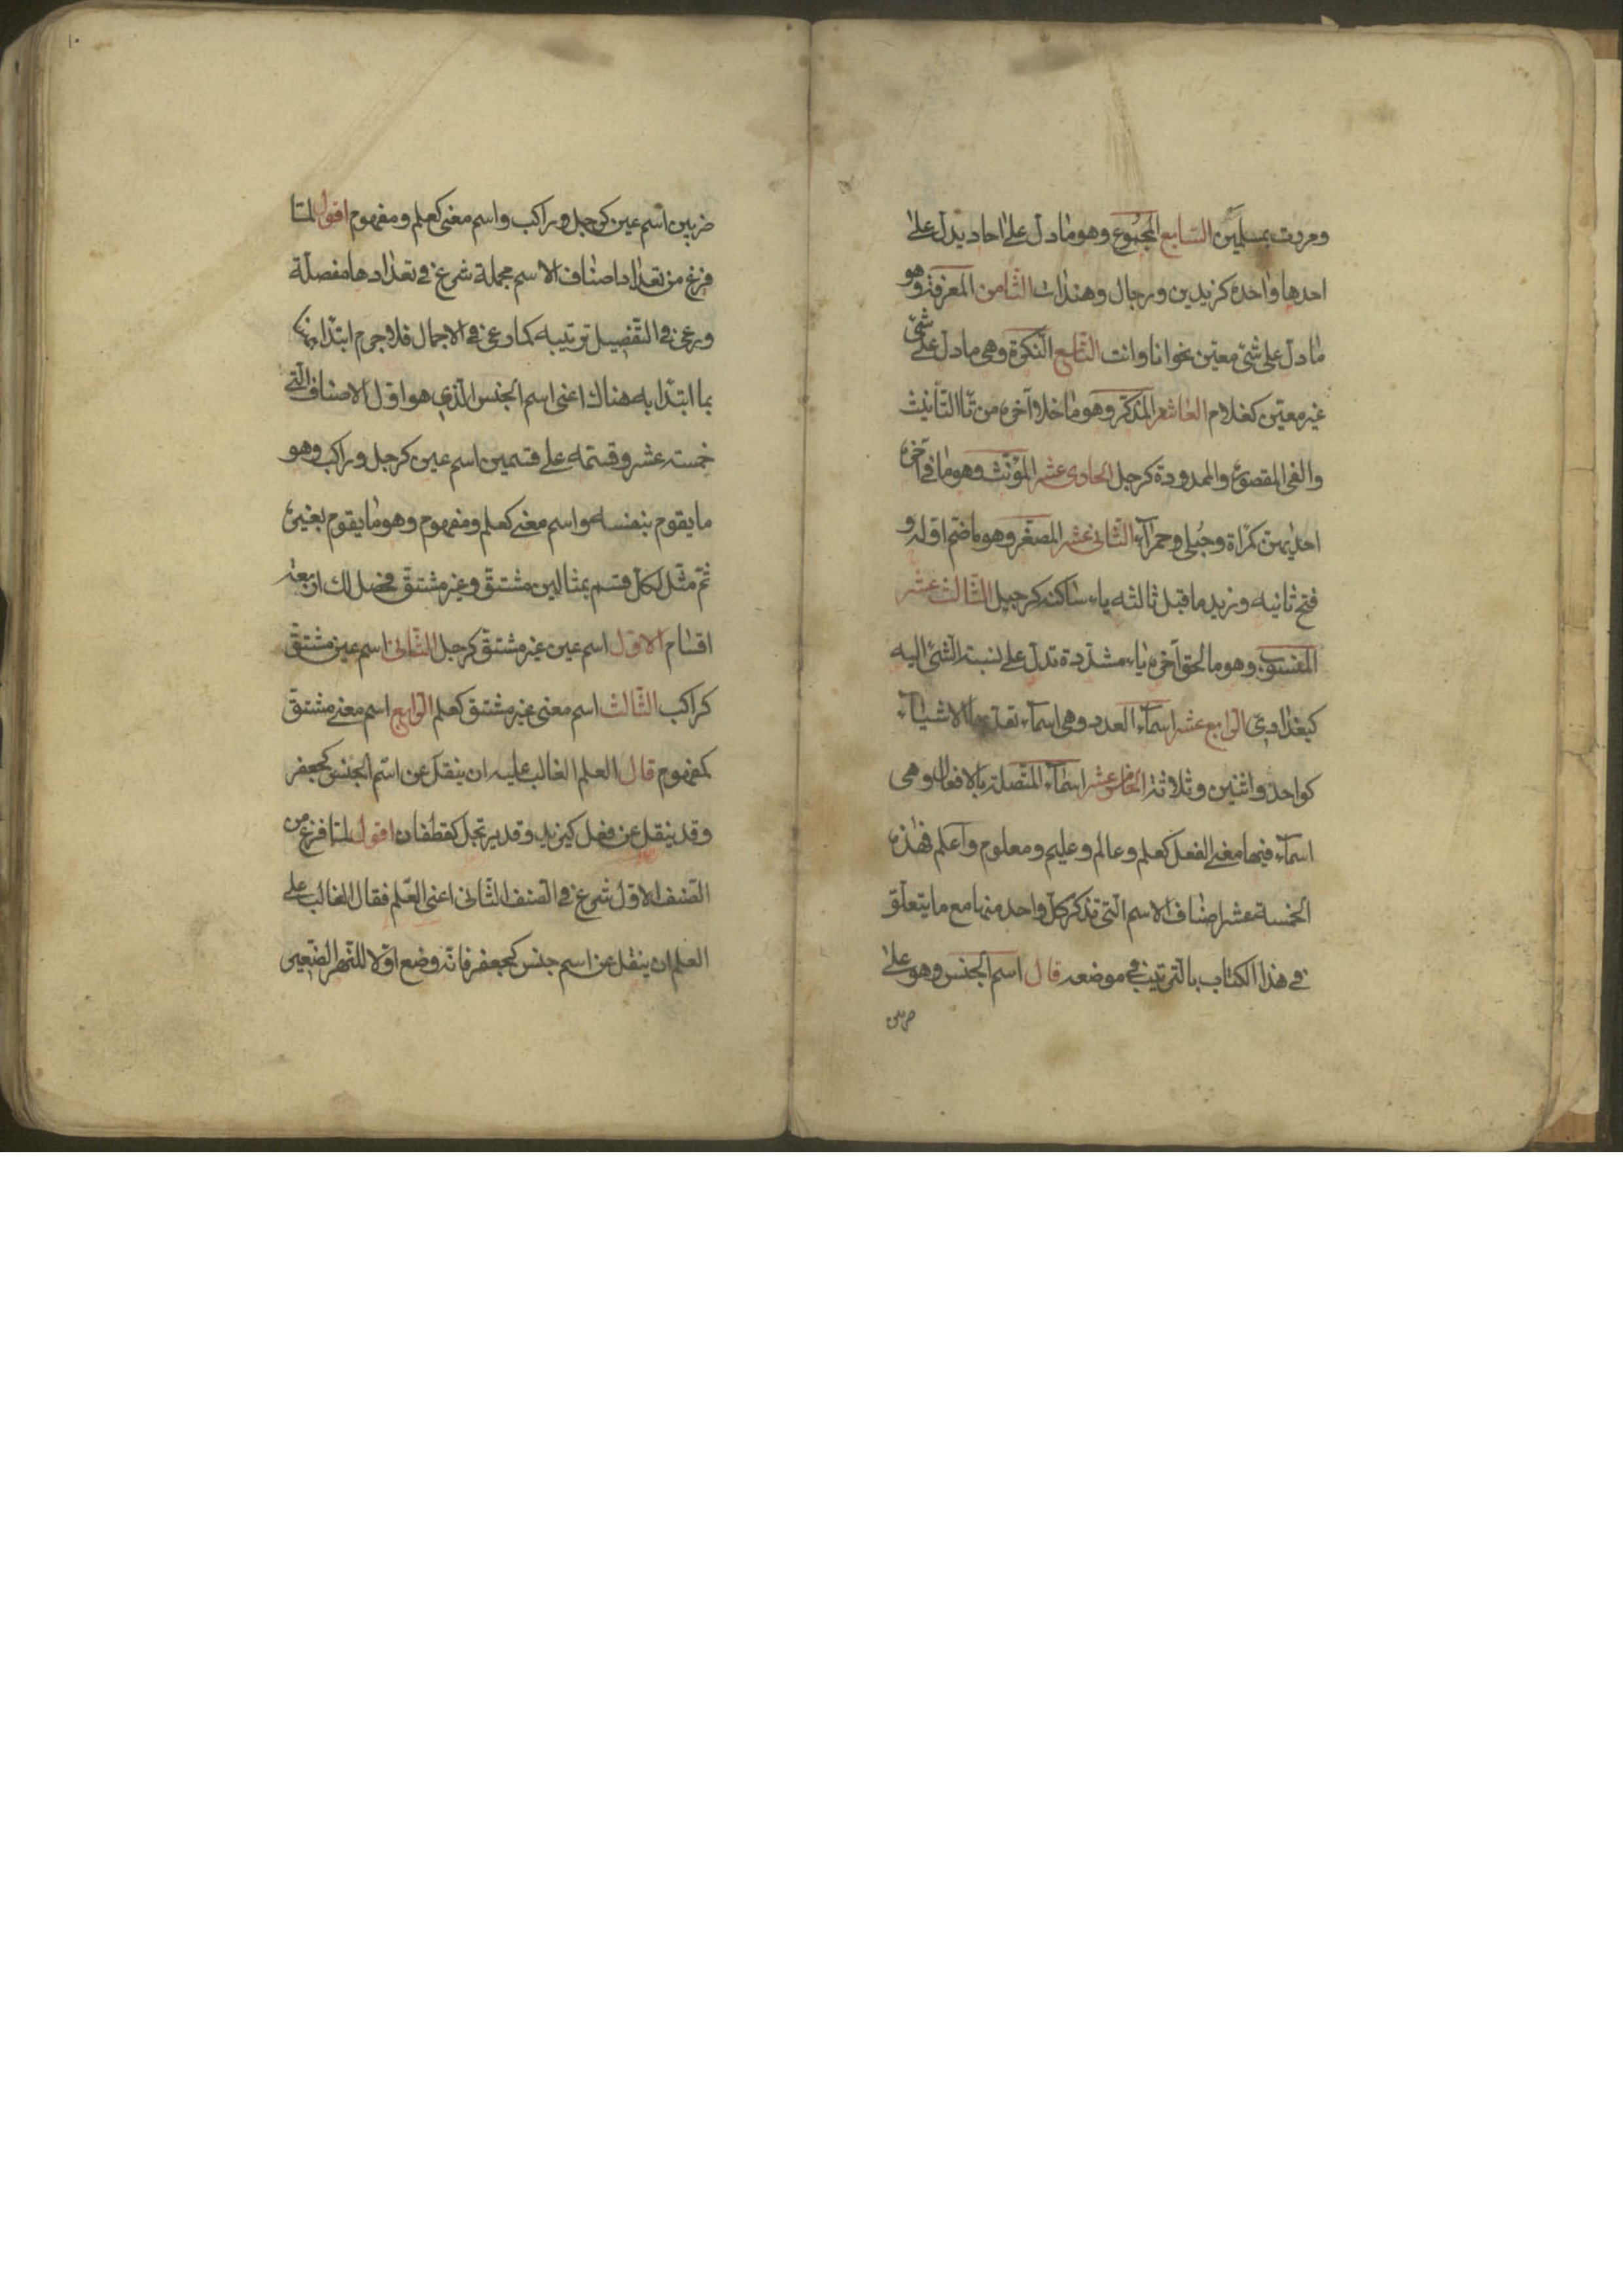 ومررت بمسلمين السابع المجموع وهو ما دل على احاد يدل على
احدها واحده كزيدين ورجال وهندات الثامن المعرفة وهو
ما دل على شئ معين نحو انا وانت التاسع النكرة وهي ما دل على شئ
غير معين كغلام العاشر المذكر وهو ما خلا آخره من تا التأنيث
والفى المقصورة والممدودة كرجل الحادى عشر المؤنث وهو ما فى آخره
احديهن كمراة وحبلى وحمرآء الثانى عشر المصغر وهو ما ضم اوله و
فتح ثانيه وزيد ما قبل ثالثه ياء ساكنة كرجيل الثالث عشر
المنسوب وهو ما لحق آخره ياء مشددة تدل على نسبة الشئ اليه
كبغدادى الرابع عشر اسمآء العدد وهى اسمآء تعد بها الاشيآء
كواحد واثنين وثلاثة الخامس عشر اسمآء المتصلة بالافعال وهى
اسمآء فيها معنى الفعل كعلم وعالم وعليم ومعلوم وأعلم فهذه
الخمسة عشر اصناف الاسم التى تذكر كل واحد منها مع ما يتعلق
فى هذا الكتاب بالترتيب فى موضعه قال اسم الجنس وهو على
ضربين
١٠
ضربين اسم عين كرجل وراكب واسم معنى كعلم ومفهوم اقول لما
فرغ من تعداد اصناف الاسم مجملة شرع فى تعدادها مفصلة
ورعى فى التفصيل ترتيبه كما رعى فى الاجمال فلا جرم ابتدا هنا
بما ابتدا به هناك اعنى اسم الجنس الذى هو اول الاصناف التى
خمسة عشر وقسمه على قسمين اسم عين كرجل وراكب وهو
ما يقوم بنفسه واسم معنى كعلم ومفهوم وهو ما يقوم بغيره
ثم مثل لكل قسم بمثالين مشتق وغير مشتق فحصل لك اربعة
اقسام الاول اسم عين غير مشتق كرجل الثانى اسم عين مشتق
كراكب الثالث اسم معنى غير مشتق كعلم الرابع اسم معنى مشتق
كمفهوم قال العلم الغالب عليه ان ينقل عن اسم الجنس كجعفر
وقد ينقل عن فعل كيزيد وقد يرتجل كغطفان اقول لما فرغ من
الصنف الاول شرع فى الصنف الثانى اعنى العلم فقال الغالب على
العلم ان ينقل عن اسم جنس كجعفر فانه وضع اولا للنهر الصغير